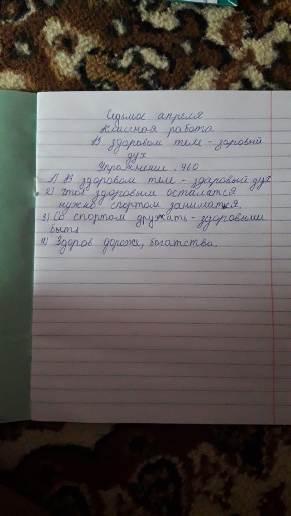 Седьмое апреля
Класная работа
В здоровом теле - зоровый
дух
Упражнение. 460
1) В здоровом теле - здаровый дух
2) Чтоб здоровым осталятся
нужно спортом заниматся.
3) Со спортом дружить - здоровыми
быть
4) Здоров дороже, богатства.